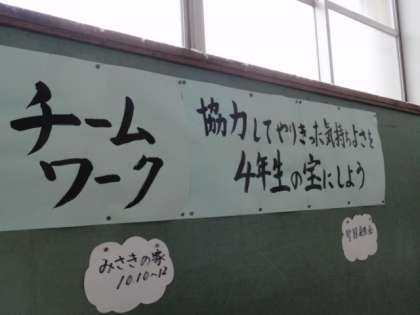 チーム
ワーク
協力してやりきった気持ちよさを
4年生の宝にしよう
みさきの家
10.10~12